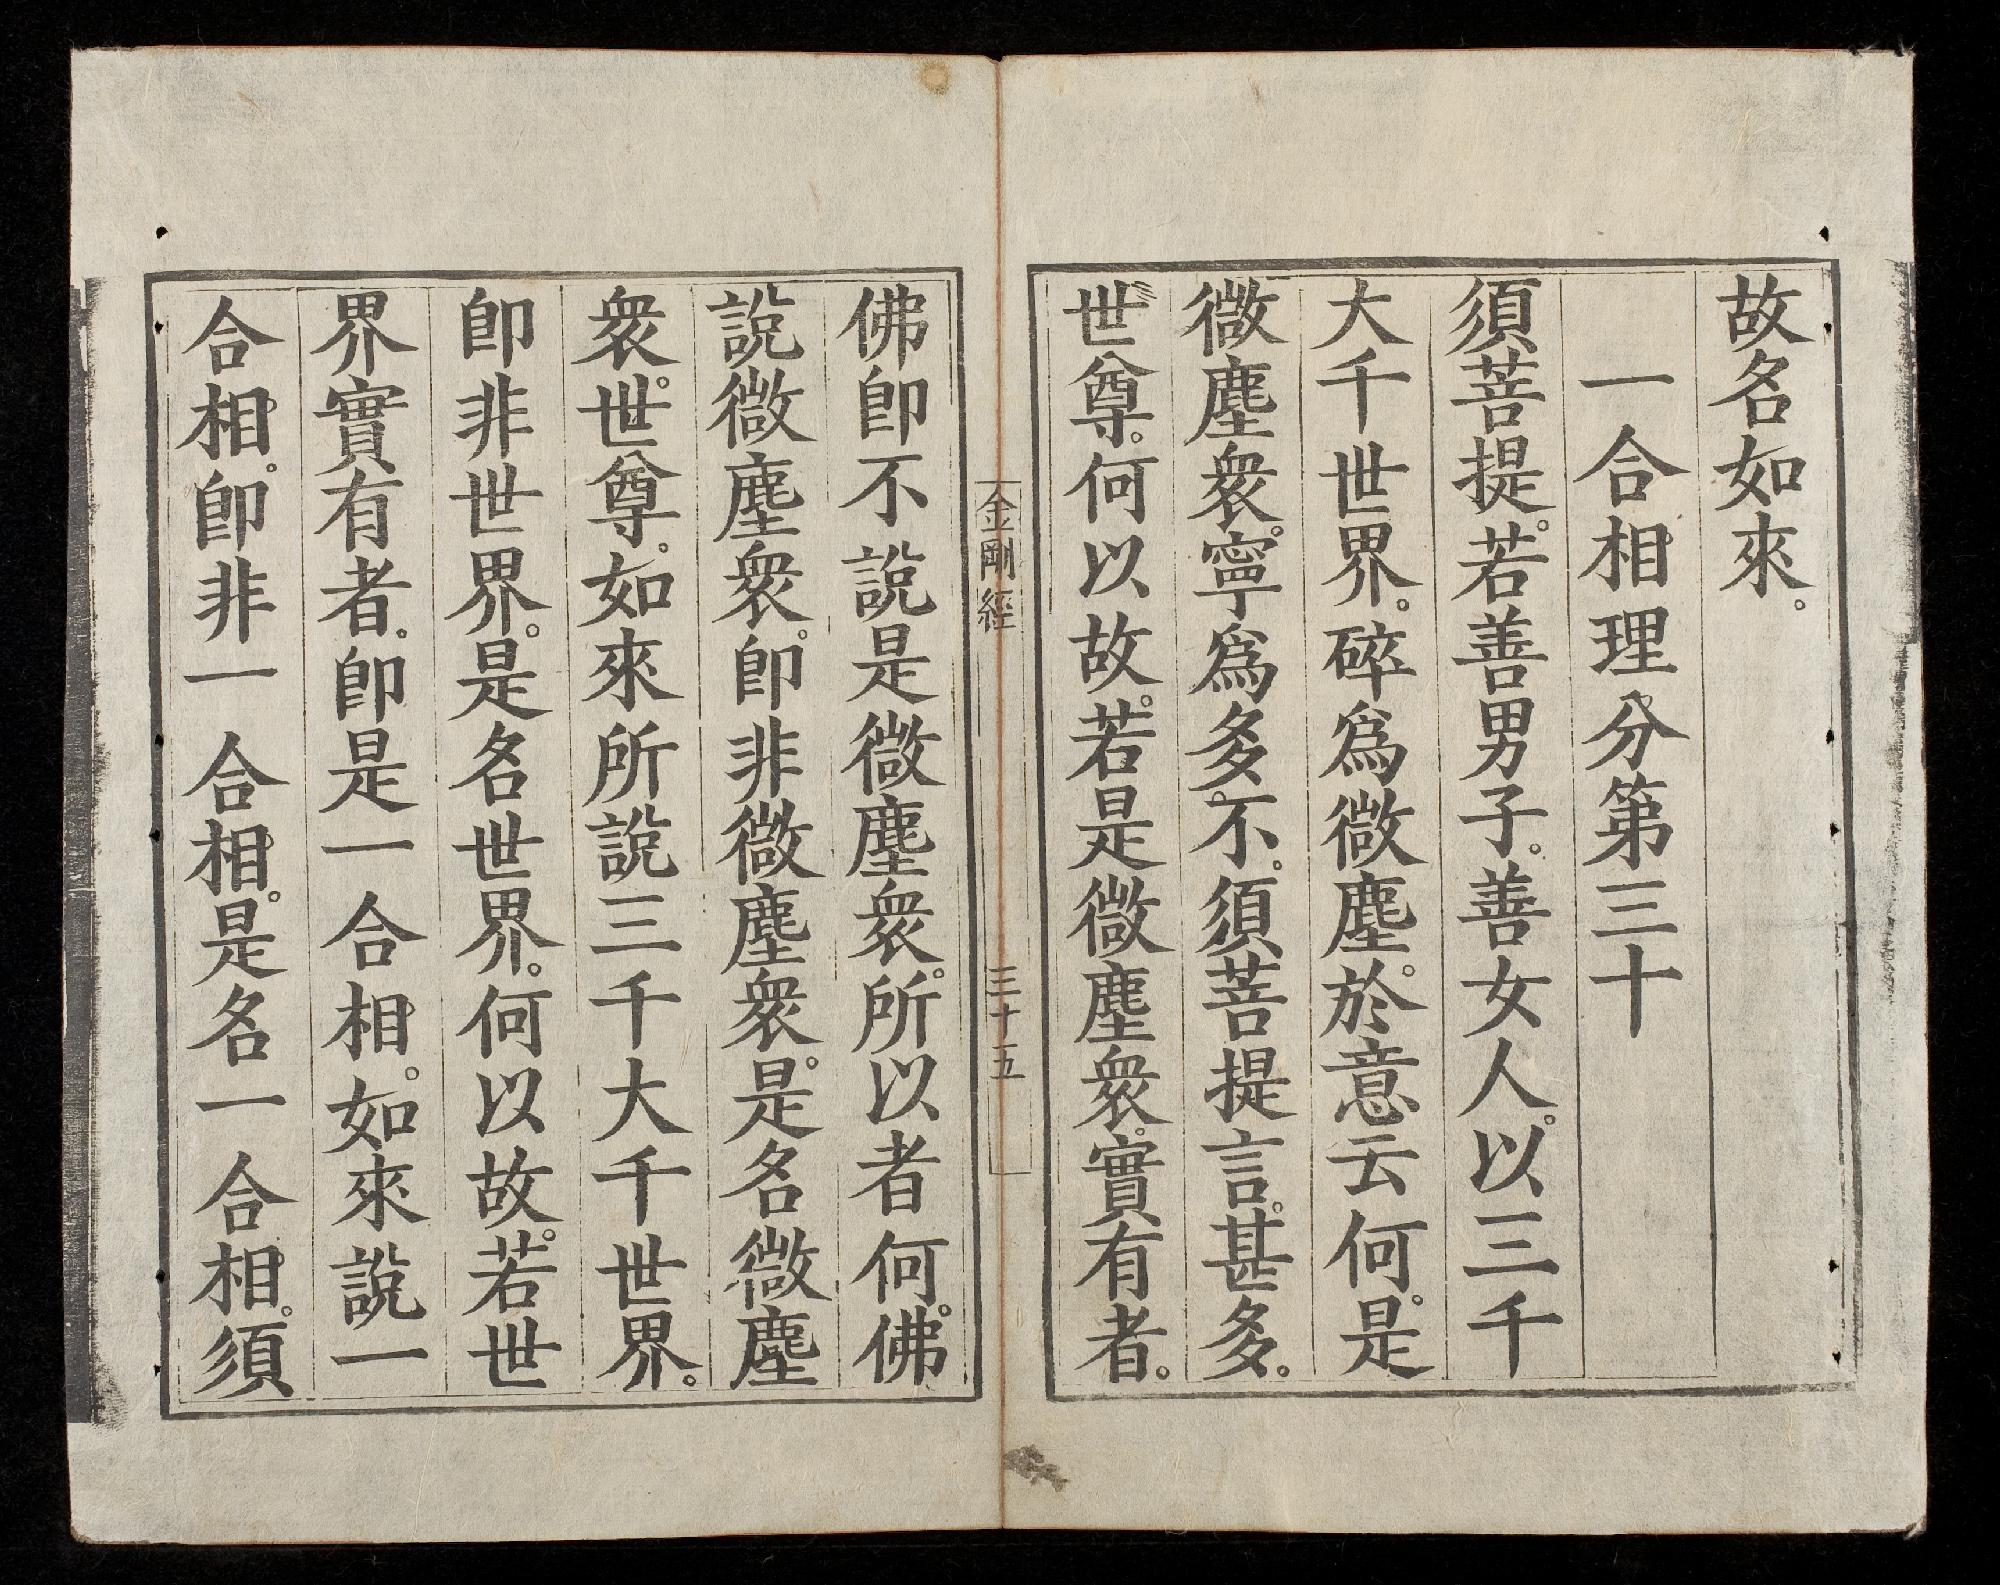 故名如來。
一合相理分第三十
須菩提。若善男子。善女人。以三千
大千世界。碎爲微塵。於意云何。是
微塵衆。寧爲多。不。須菩提言。甚多。
世尊。何以故。若是微塵衆。實有者。
金剛經 三十五
佛卽不說是微塵衆。所以者何。佛
說微塵衆。卽非微塵衆。是名微塵
衆。世尊。如來所說三千大千世界。
卽非世界。是名世界。何以故。若世
界實有者。卽是一合相。如來說一
合相。卽非一合相。是名一合相。須